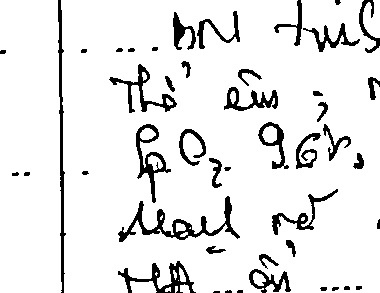 BN tỉnh
Thở êm ;
SpO2 96%,
Mạch rõ
HA ổn